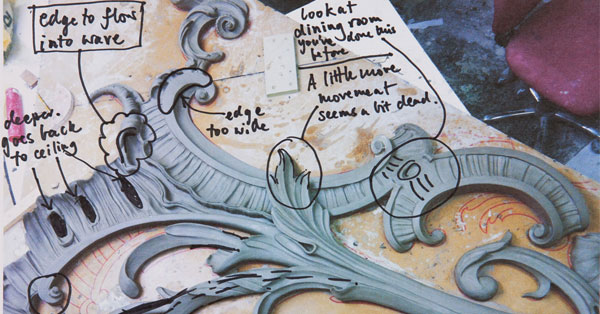 edge to flow
into wave
look at
dining room
you've done this
before
A little more
movement
seems a bit dead.
edge
too wide
deeper.
goes back
to ceiling